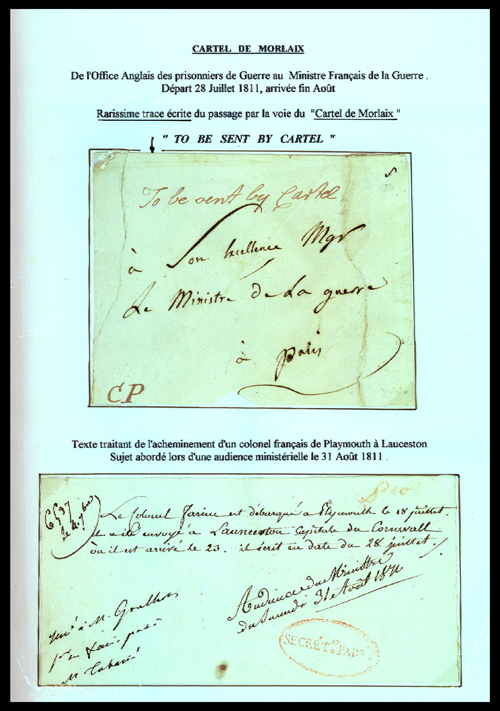 CARTEL DE MORLAIX
De l'Office Anglais des prisonniers de Guerre au Ministre Français de la Guerre .
Départ 28 Juillet 1811, arrivée fin Août
Rarissime trace écrite du passage par la voie du "Cartel de Morlaix "
" TO BE SENT BY CARTEL "
To be sent by Cartel
à Son Excellence Mgr
Le Ministre de La guerre
à paris
CP
Texte traitant de l'acheminement d'un colonel français de Playmouth à Lauceston
Sujet abordé lors d'une audience ministérielle le 31 Août 1811 .
Le Colonel est débarqué à Playmouth le 18 juillet
il a été envoyé à Launceston Capitale du Cornwall
où il est arrivé le 23. il écrit en date du 28 juillet.
Audience du Ministre
du 31 Août 1811
à Mr
Mr
SECRÉT